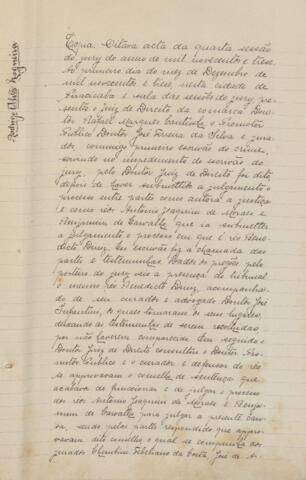 Copia. Oitava acta da quarta sessão
do jury do anno de mil novecentos e treze.
Ao primeiro dia do mez de Dezembro de
mil novecentos e treze, nesta cidade de
Piracicaba e sala das sessões do jury, pre-
sentes o juiz de Direito da comarca Dou-
tor Rafael Marques Cantinho, o Promotor
Publico Doutor José Ferreira da Silva e jura-
dos, commigo primeiro escrivão do crime,
servindo no impedimento do escrivão do
jury, pelo Doutor Juiz de Direito foi dito
depois de haver submettido a julgamento o
processo entre partes como autora a justiça
e como réos Antonio Joaquim de Moraes e
Benjamim de Carvalho que ia submetter
a julgamento o processo em que é réo Bene-
dicto Diniz. Eu escrivão fiz a chamada das
partes e testemunhas. Dados os pregões pelo
porteiro do jury veio a presença do tribunal
o mesmo réo Benedicto Diniz, acompanha-
do de seu curador e advogado Doutor José
os quaes tomaram os seus lugares,
deixando as testemunhas de serem recolhidas,
por não haverem comparecido. Em seguida o
Doutor Juiz de Direito consultou o Doutor Pro-
motor Publico e o curador e defensor do réo
se approvavam o conselho de sentença que
acabava de funccionar e de julgar o processo
dos réos Antonio Joaquim de Moraes e Benja-
mim de Carvalho para julgar a presente cau-
sa, sendo pelas partes respondido que appro-
vavam dito conselho o qual se compunha dos
jurados Cherubim Febeliano da Costa, José de A-
Rodrigo Alves Nogueira